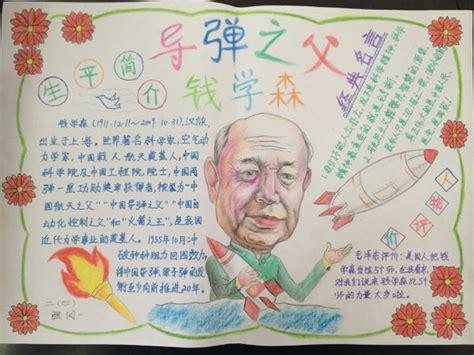 导弹之父
钱学森
生平简介
钱学森(1911·12·11~2009·10·31),汉族,
出生于上海。世界著名科学家,空气动
力学家,中国载人航天奠基人,中国
科学院及中国工程院院士,中国两
弹一星功勋奖章获得者,被誉为“中
国航天之父”“中国导弹之父”“中国自
动化控制之父”和“火箭之王”,是我国
近代力学事业的奠基人。1955年10月冲
破种种阻力回国效力,
得中国导弹、原子弹的发
射至少向前推进20年。
二(四)
经典名言
人物评价
毛泽东评价:美国人把钱
学森当成5个师,在我看来,
对我们说来钱学森比5个
师的力量大多啦。